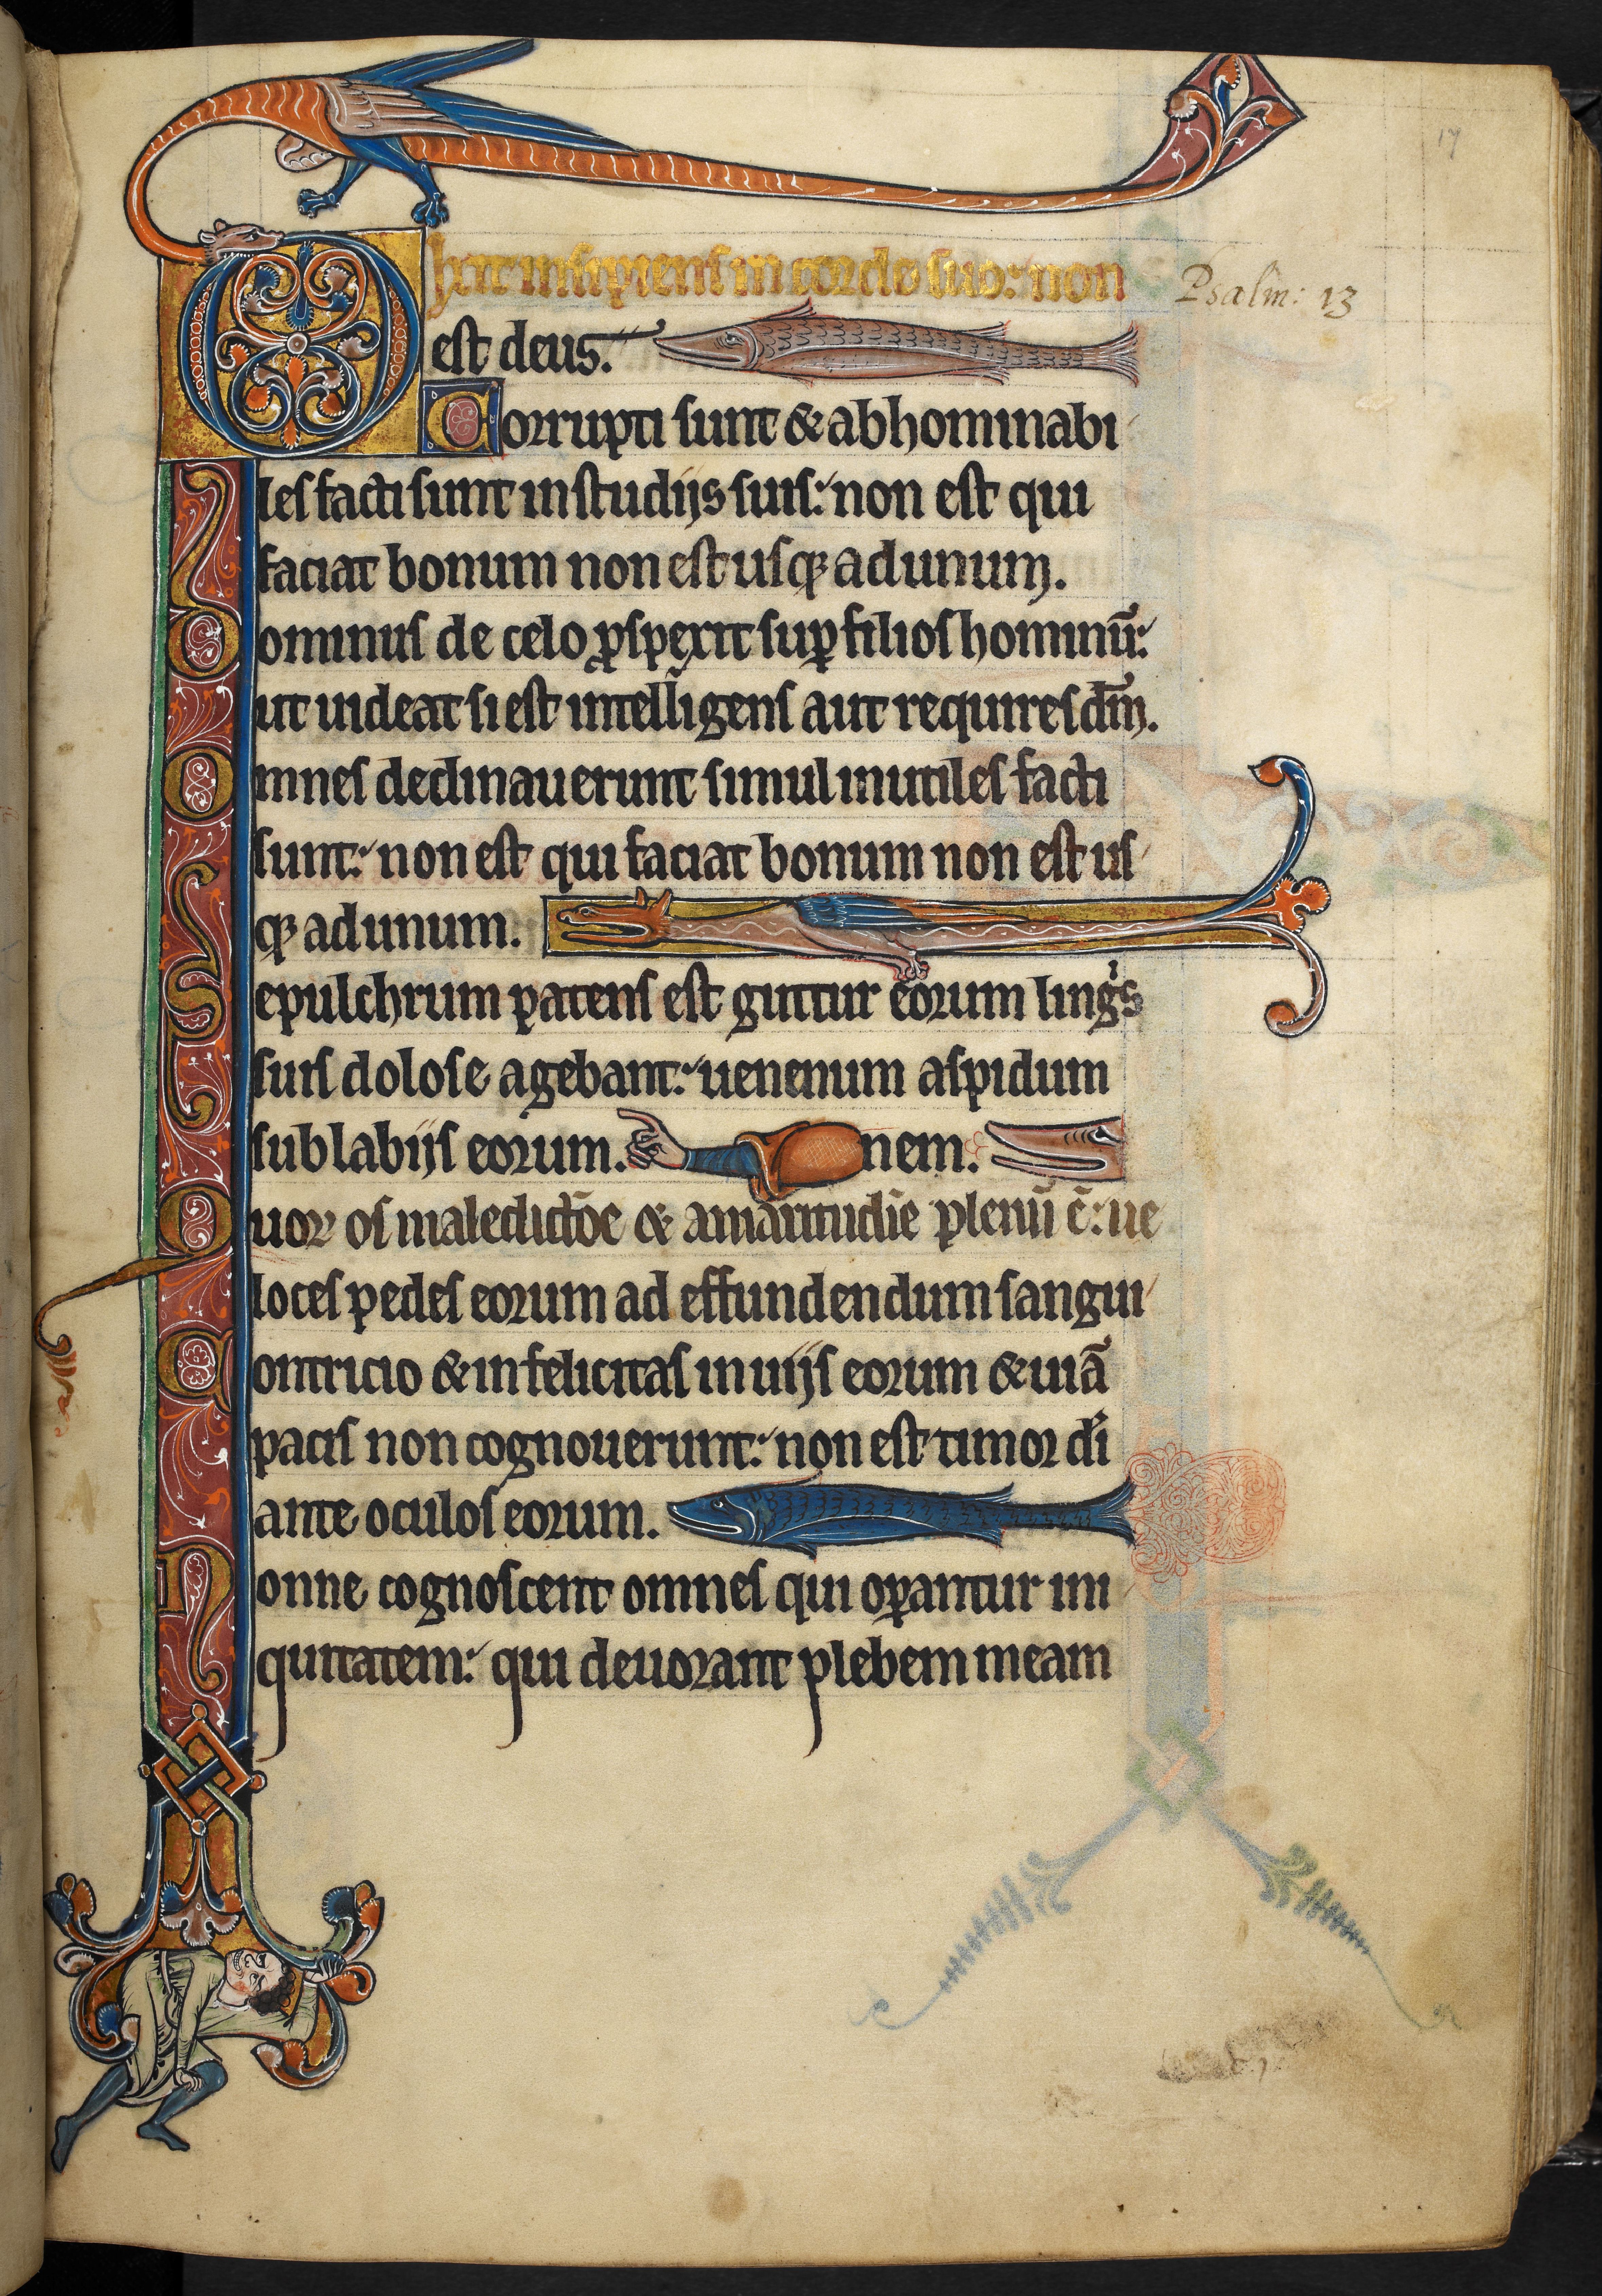 17
Dixit insipiens in corde suo: non
Psalm: 13
est deus.
Corrupti sunt & abhominabi
les facti sunt in studijs suis: non est qui
faciat bonum non est usq; ad unum.
Dominus de celo ꝓspexit suꝑ filios hominū:
ut uideat si est intelligens aut requires dm̄.
Omnes declinauerunt simul inutiles facti
sunt: non est qui faciat bonum non est us
q; ad unum.
Sepulchrum patens est guttur eorum lingⁱs
suis dolose agebant: uenenum aspidum
sub labijs eorum. nem.
Quoꝝ os maledictōe & amaritudīe plenū ē: ue
loces pedes eorum ad effundendum sangui
Contricio & infelicitas in uijs eorum & uiā
pacis non cognouerunt: non est timor dī
ante oculos eorum.
Nonne cognoscent omnes qui oꝑantur ini
quitatem: qui deuorant plebem meam